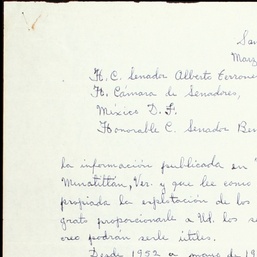 San
Marz
H. C. Senador Alberto Terrone
H. Cámara de Senadores,
México D. F.
Honorable C. Senador Ben
la información publicada en "
Minatitlán, Ver. y que lee como
propiada la explotación de los
grato proporcionarle a Ud. los se
creo podrán serle útiles.
Desde 1952 a mayo de 19